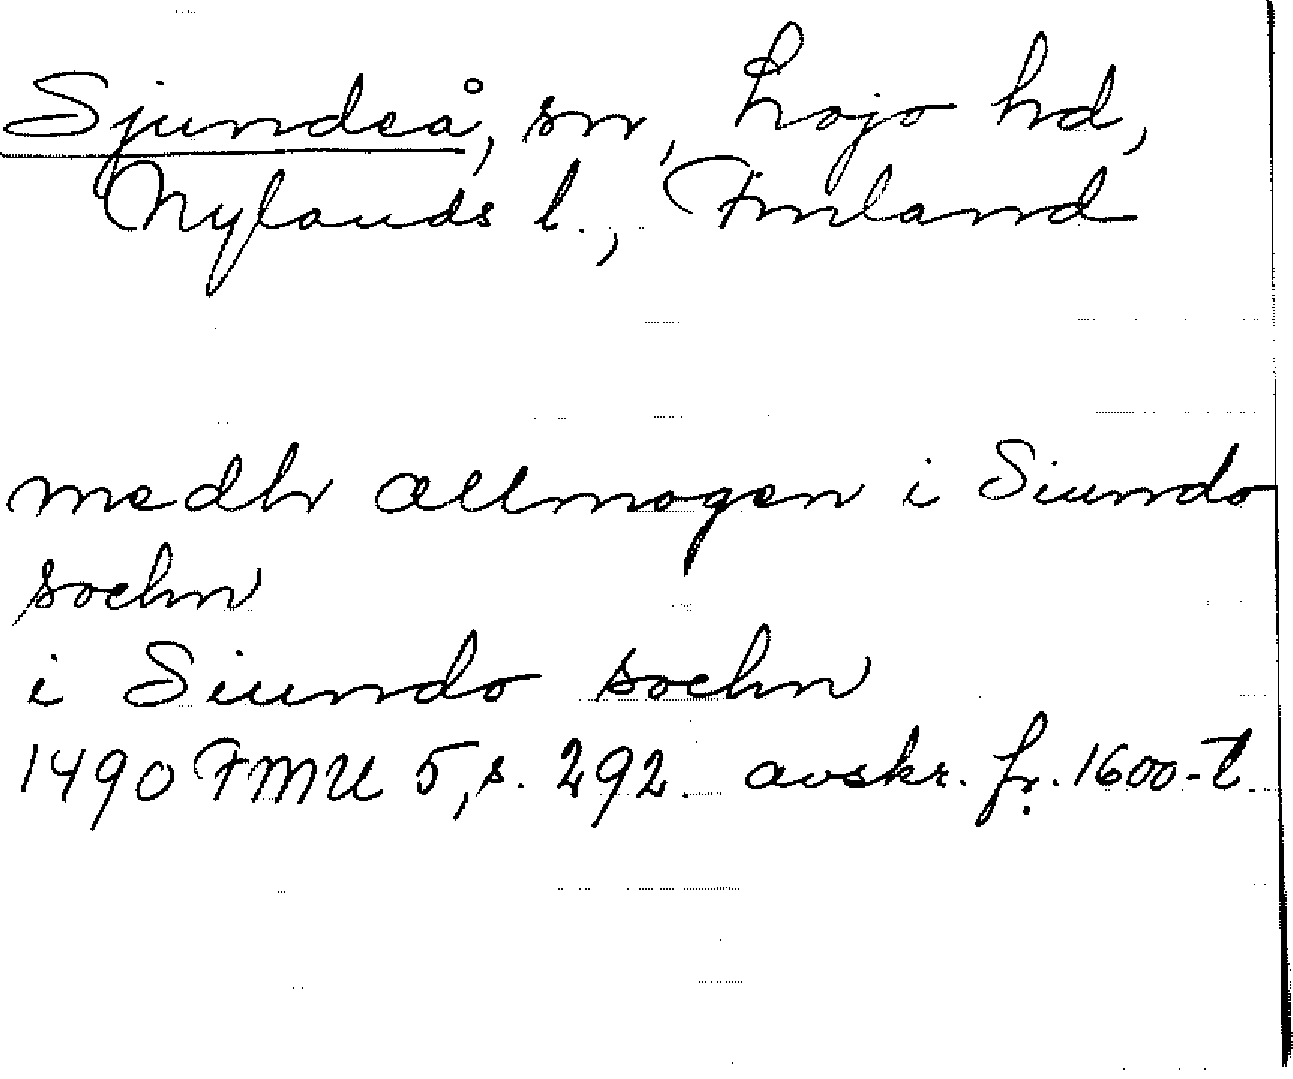 Sjundeå, sn, Lojo hd,
Nylands l., Finland
medh allmogen i Siundo
sochn
i Siundo sochn
1490 FMU 5, s. 292. avskr. fr. 1600-t.